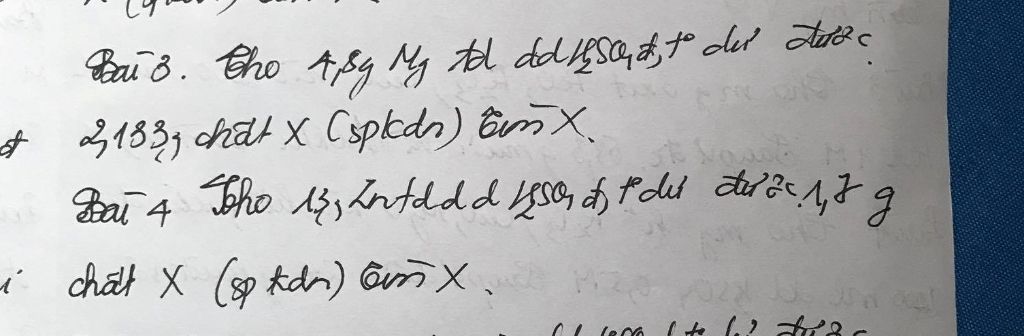 Bài 3. Cho 4,8g Mg td dd H₂SO₄ đ, t° dư được
2,133g chất X (spkdn) tìm X.
Bài 4 Cho 13g Zn td dd H₂SO₄ đ, t° dư được 1,7 g
chất X (spkdn) tìm X.